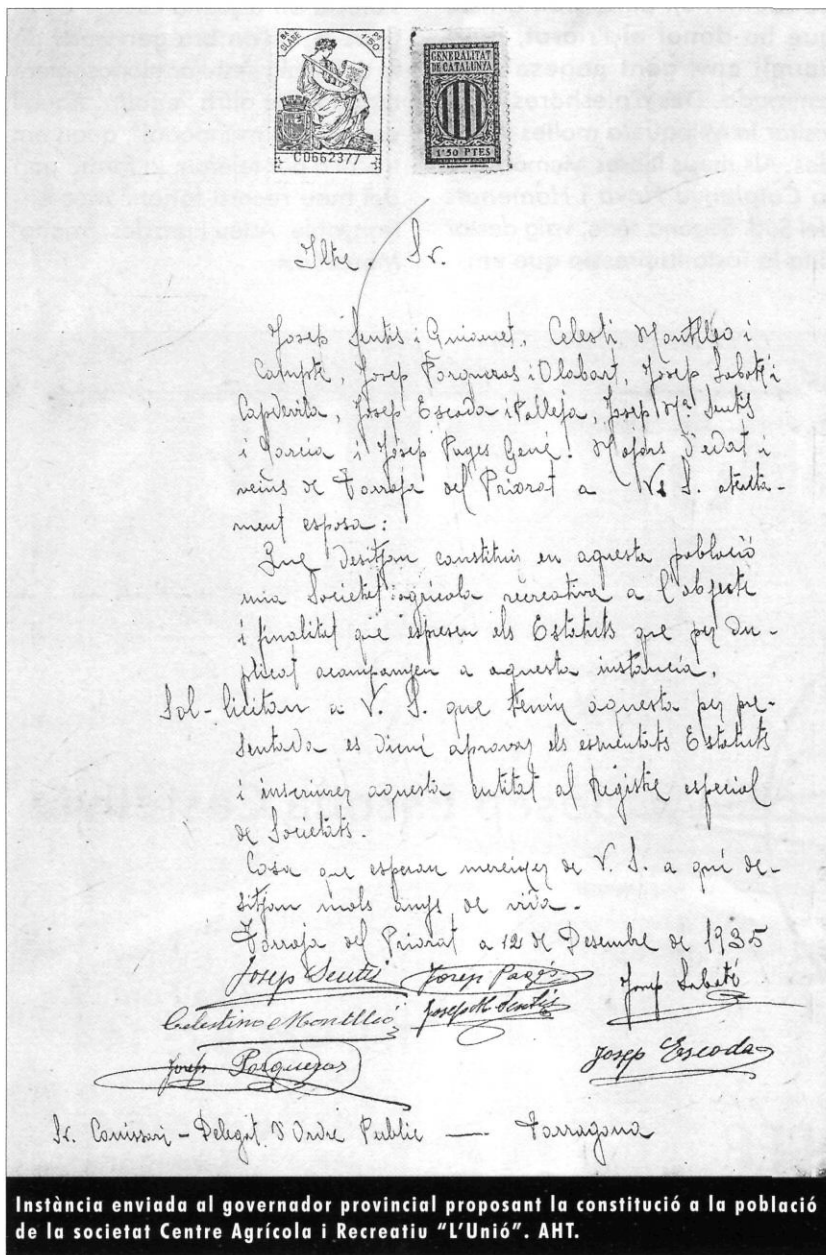 8A CLASE
1'50
C0662377
GENERALITAT
DE CATALUNYA
1'50 PTES
Iltre Sr.
Josep Sentís i Guiamet, Celestí Montlleó i
Josep Porqueras i Olabart, Josep Sabaté i
Capdevila, Josep Escoda i Vallejà, Josep Mª Sentís
i Garcia i Josep Pages Gené. Majors d'edat i
veïns de Torroja del Priorat a V. S. atenta-
ment esposa:
Que desitjan constituir en aquesta població
una Societat agrícola recreativa a l'objecte
i finalitat que espresen els Estatuts que per du-
plicat acompanyen a aquesta instancia.
Sol-licitan a V. S. que tenin aquesta per pre-
sentada es digni aprovar els esmentats Estatuts
i inscriurer aquesta entitat al registre especial
de Societats.
Cosa que esperan mereixer de V. S. a qui de-
sitjan mols anys de vida.
Torroja del Priorat a 12 de Desembre de 1935
Josep Sentís Josep Pagés Josep Sabaté
Celestino Montlleó Josep M Sentís
Josep Porqueras Josep Escoda
Sr. Comissari - Delegat D'Ordre Public — Tarragona
Instància enviada al governador provincial proposant la constitució a la població
de la societat Centre Agrícola i Recreatiu "L'Unió". AHT.